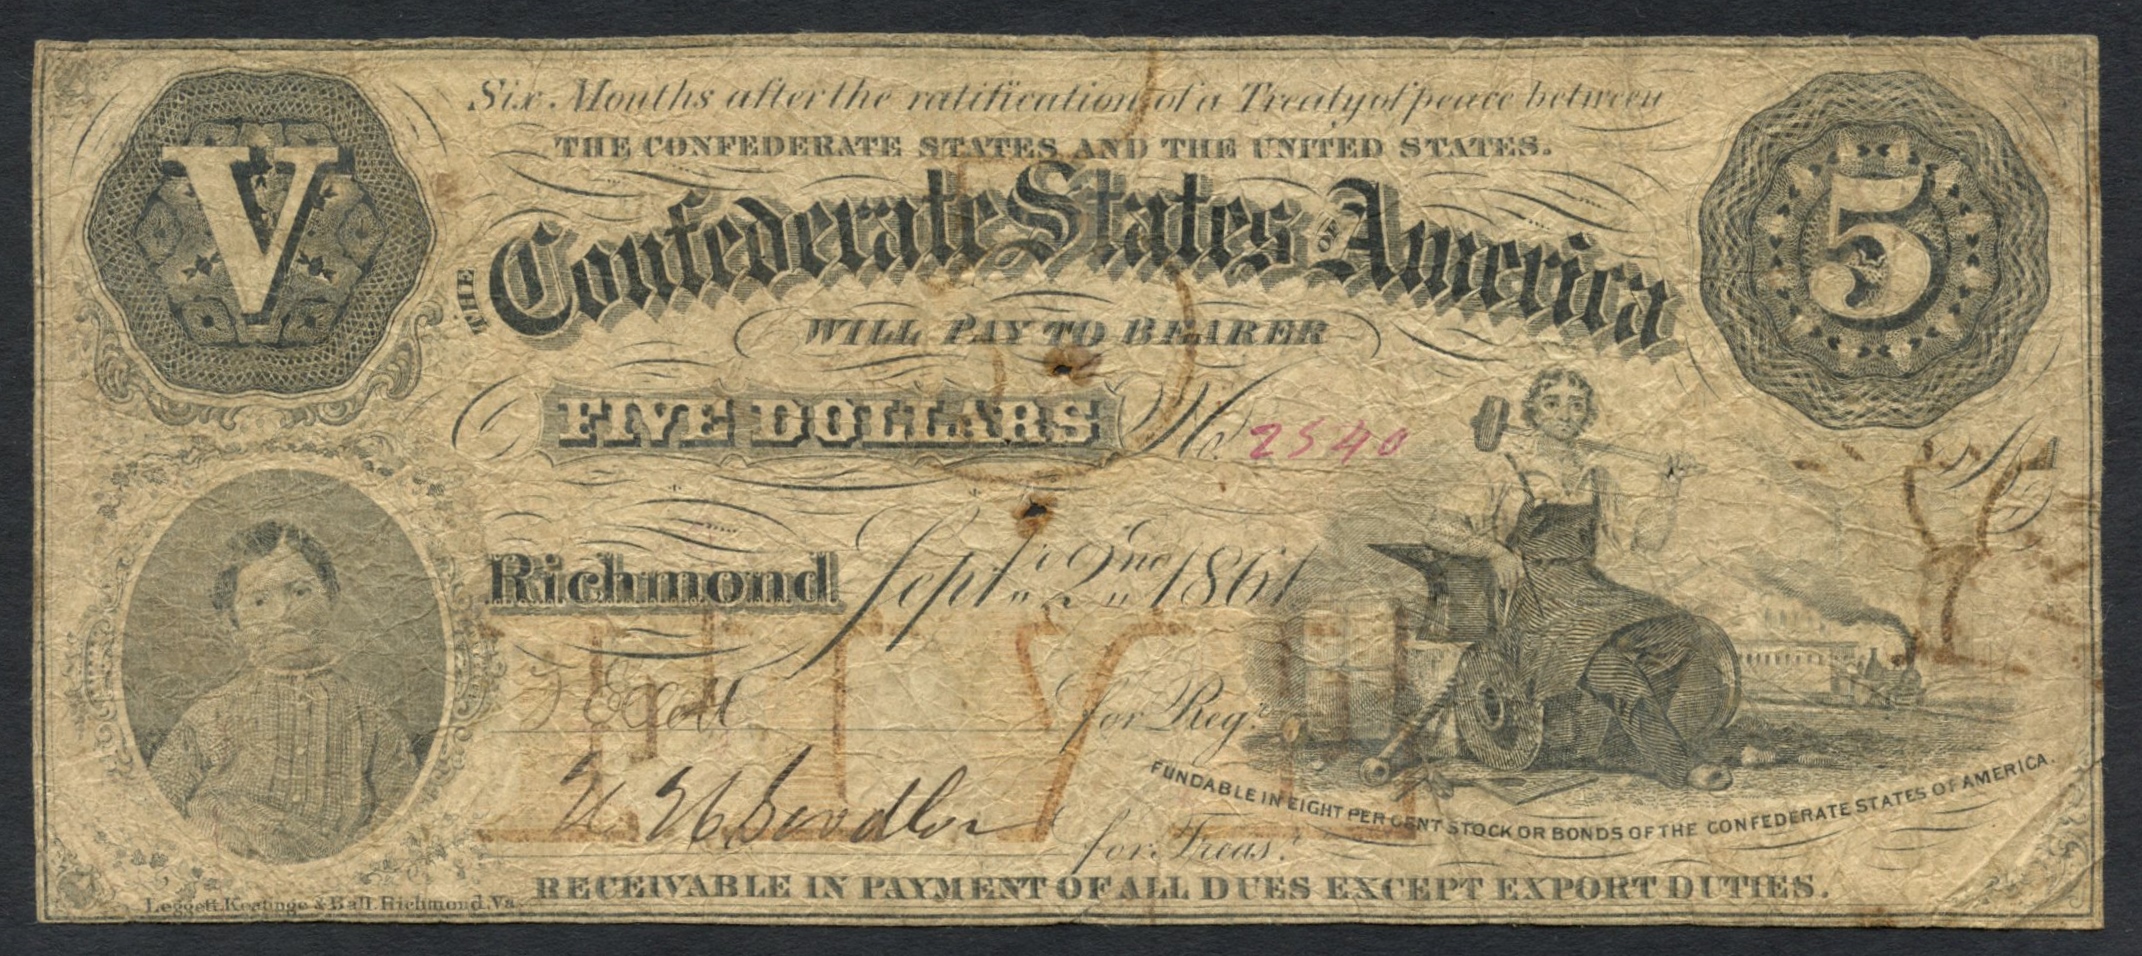 Six Months after the ratification of a Treaty of peace between
THE CONFEDERATE STATES AND THE UNITED STATES.
V
5
THE Confederate States OF America
WILL PAY TO BEARER
FIVE DOLLARS
No. 2540
Richmond Sept. 2nd 1861
for Regr.
for Treas.
FUNDABLE IN EIGHT PER CENT STOCK OR BONDS OF THE CONFEDERATE STATES OF AMERICA.
RECEIVABLE IN PAYMENT OF ALL DUES EXCEPT EXPORT DUTIES.
Leggett, Keatinge & Ball, Richmond, Va.